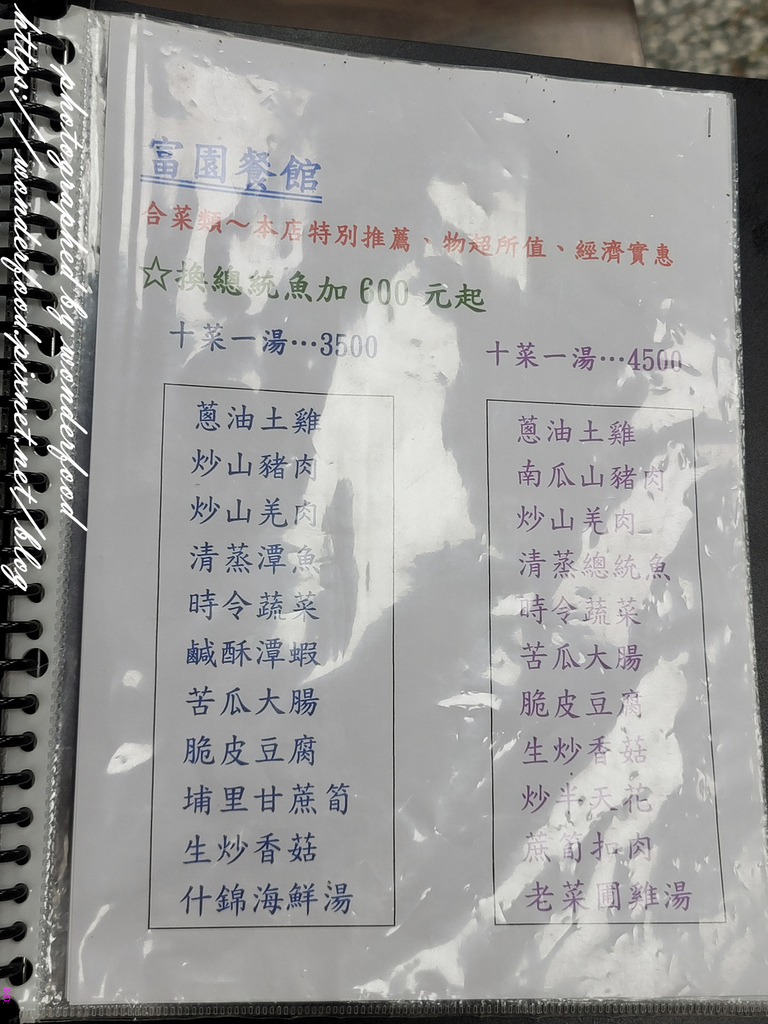 富園餐館
合菜類～本店特別推薦、物超所值、經濟實惠
☆換總統魚加 600 元起
十菜一湯…3500
蔥油土雞
炒山豬肉
炒山羌肉
清蒸潭魚
時令蔬菜
鹹酥潭蝦
苦瓜大腸
脆皮豆腐
埔里甘蔗筍
生炒香菇
什錦海鮮湯
十菜一湯…4500
蔥油土雞
南瓜山豬肉
炒山羌肉
清蒸總統魚
時令蔬菜
苦瓜大腸
脆皮豆腐
生炒香菇
炒半天花
蔗筍扣肉
老菜圃雞湯
photographed by wonderfood
https://wonderfood.pixnet.net/blog